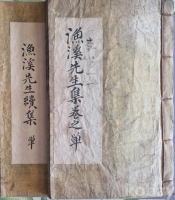 漁溪先生集卷之單
漁溪先生續集 單